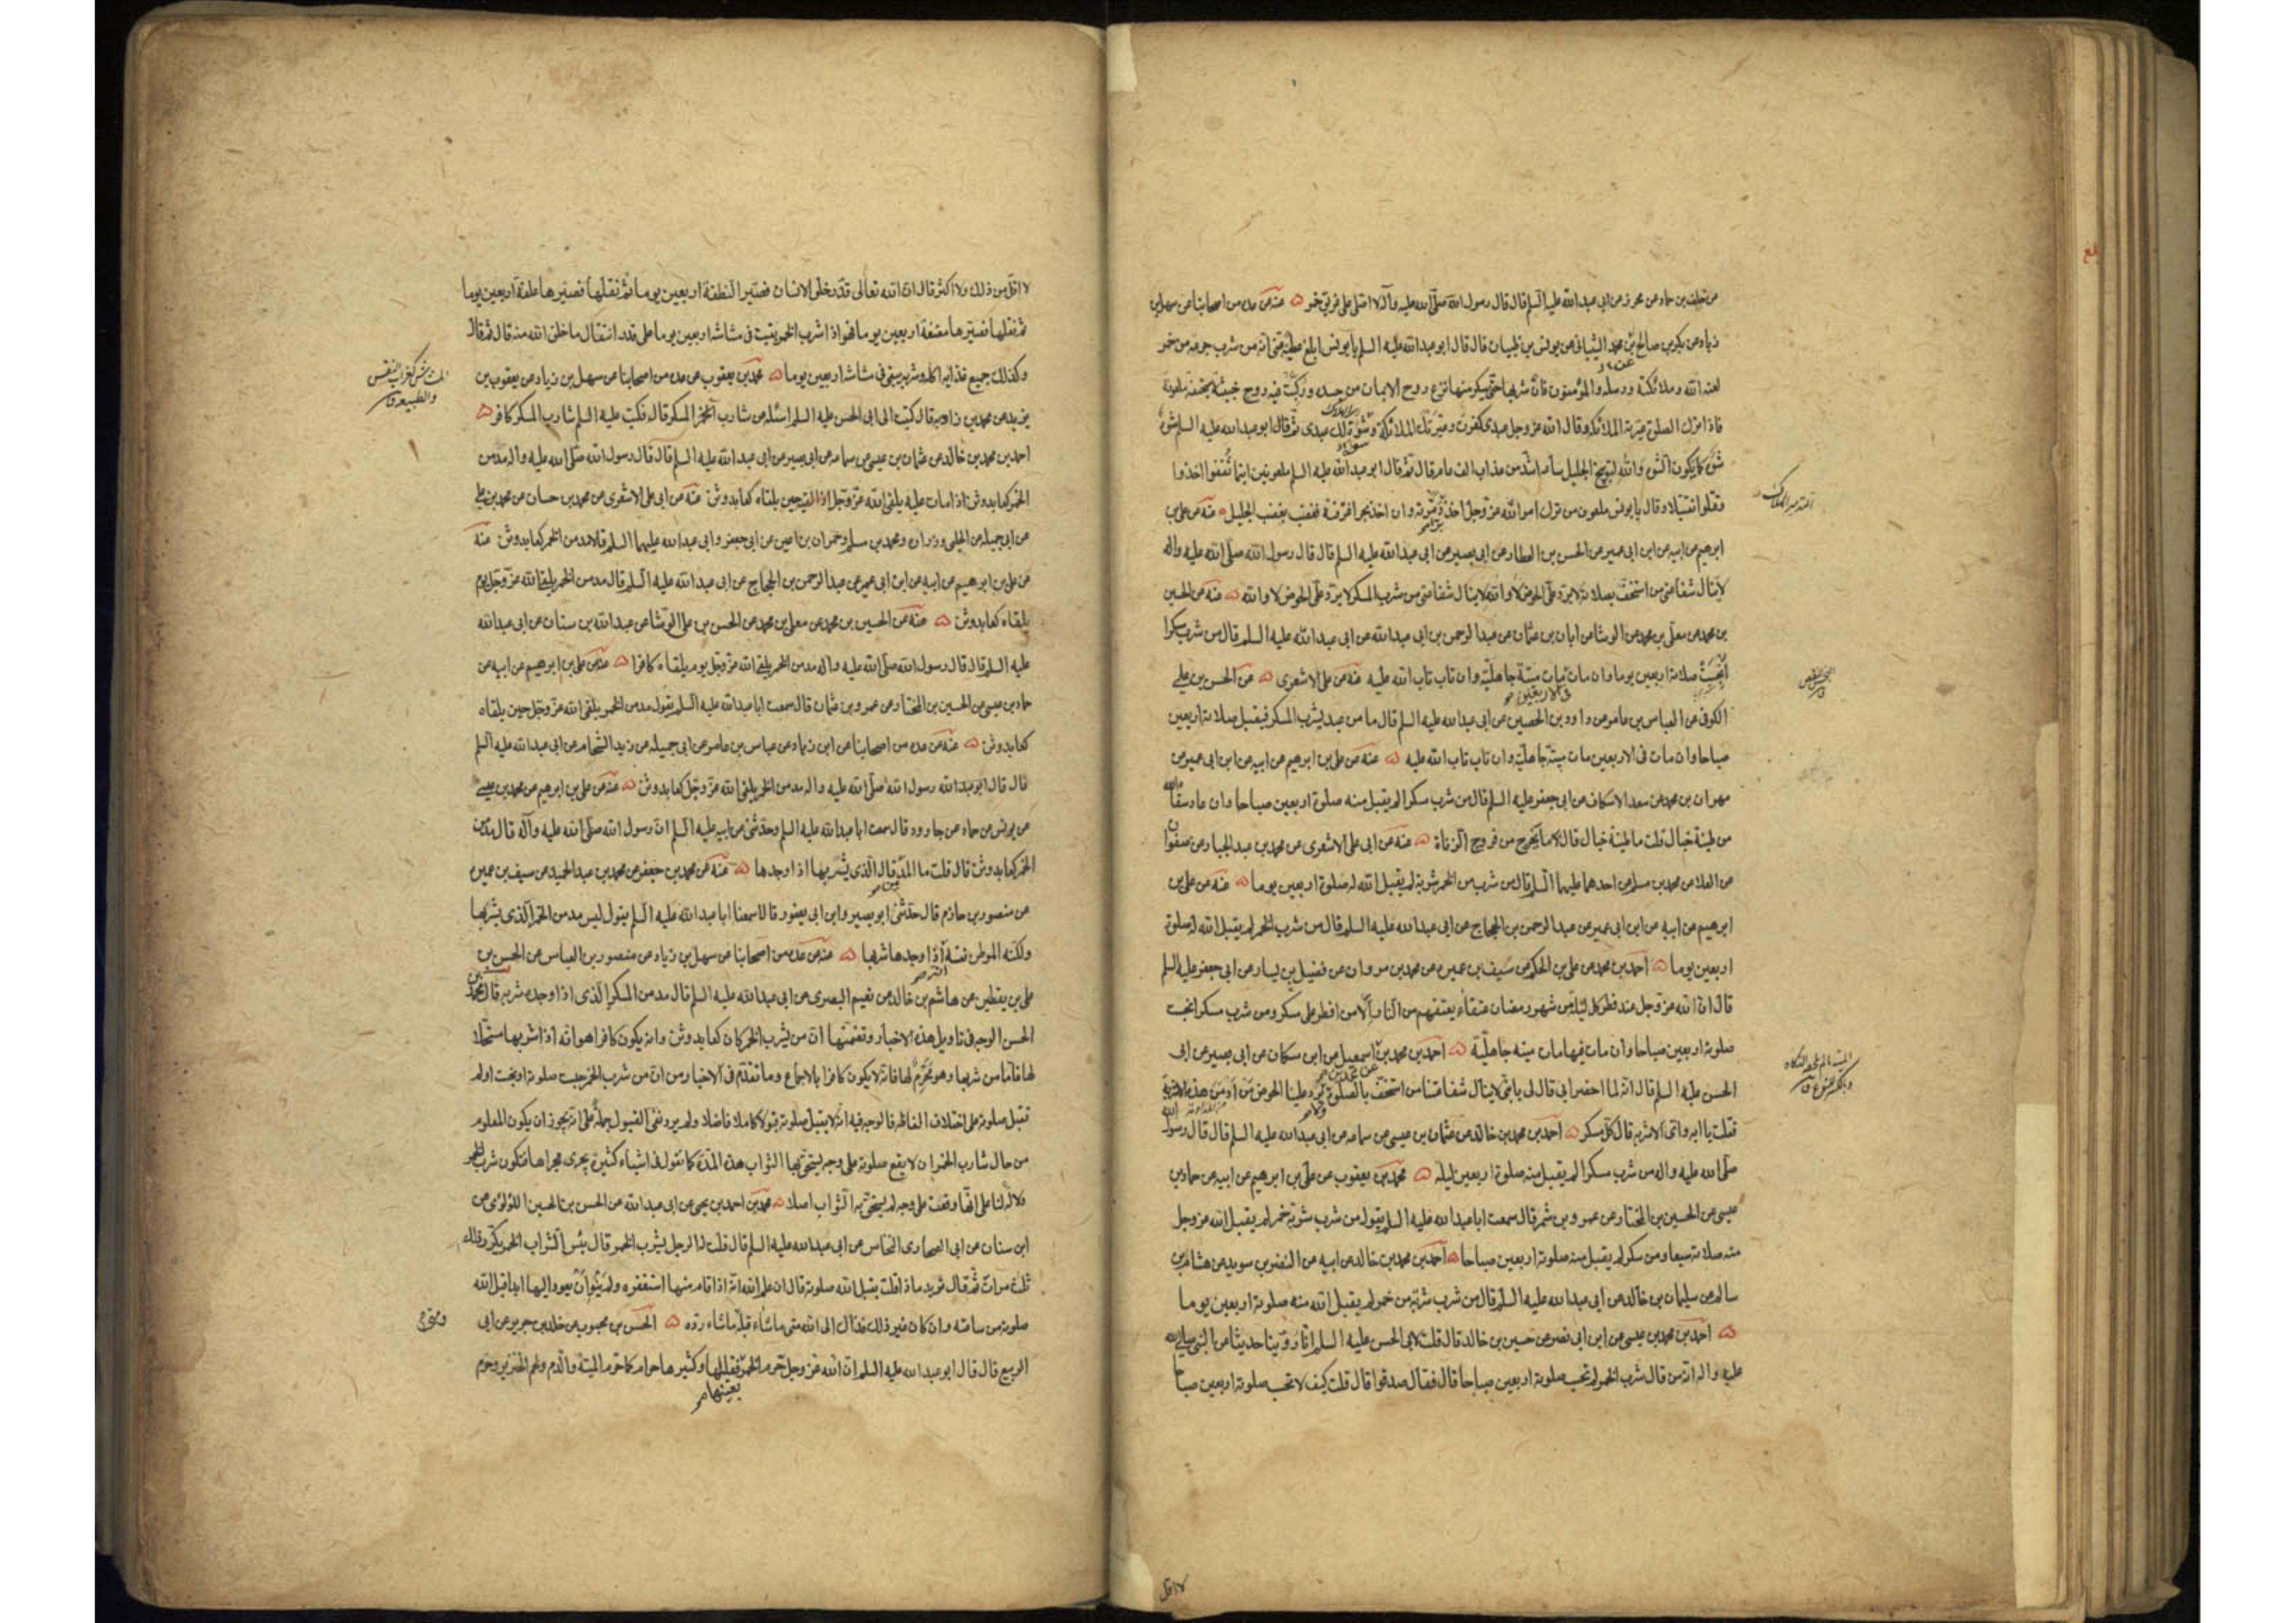 من خلف بن حماد عن محرز عن ابي عبدالله عليه السلم قال قال رسول الله صلى الله عليه وآله لا اصلى على غريق خمر عنه عن عدة من اصحابنا عن سهل بن
زياد عن بكر بن صالح عن محمد الشيباني عن يونس بن ظبيان قال قال ابو عبدالله عليه السلم يا يونس ابلغ عطية عنى انه من شرب جرعة من خمر
لعنه الله وملائكته ورسله والمؤمنون فان شربها حتى يسكر منها نزع روح الايمان من جسده وركبت فيه روح خبيثة سخيفة ملعونة
فاذا ترك الصلوة عيرته الملائكة وقال الله عز وجل عبدى كفرت وعيرتك الملائكة سوءة لك عبدى ثم قال ابو عبدالله عليه السلم سوءة
سوءة كما يكون السوءة والله لتوبيخ الجليل ساعة اشد من عذاب الف عام قال ثم قال ابو عبدالله عليه السلم ملعونين اينما ثقفوا اخذوا
وقتلوا تقتيلا وقال يا يونس ملعون من ترك امر الله عز وجل ان اخذ برا دمرته وان اخذ بحرا غرقته يغضب لغضب الجليل عنه عن على بن
ابرهيم عن ابيه عن ابن ابى عمير عن الحسن بن العطار عن ابى بصير عن ابى عبدالله عليه السلم قال قال رسول الله صلى الله عليه وآله
لا ينال شفاعتى من استخف بصلاته لا يرد على الحوض لا والله لا ينال شفاعتى من شرب المسكر لا يرد على الحوض لا والله عنه عن الحسين
بن محمد عن معلى بن محمد عن الوشا عن ابان بن عثمان عن عبد الرحمن بن ابى عبدالله عن ابى عبدالله عليه السلم قال من شرب مسكرا
انبخست صلاته اربعين يوما وان مات فى الاربعين مات ميتة جاهلية وان تاب تاب الله عليه عنه عن على الاشعرى عن الحسن بن على
الكوفى عن العباس بن عامر عن داود بن الحصين عن ابى عبدالله عليه السلم قال ما من عبد يشرب المسكر فيقبل صلاته اربعين
صباحا وان مات فى الاربعين مات ميتة جاهلية وان تاب تاب الله عليه عنه عن على بن ابرهيم عن ابيه عن ابن ابى عمير عن
مهران بن محمد عن سعد الاسكاف عن ابى جعفر عليه السلم قال من شرب مسكرا لم يقبل منه صلوة اربعين صباحا وان عاد سقاه الله
من طينة خبال قلت ما طينة خبال قال ما يخرج من فروج الزناة عنه عن ابى على الاشعرى عن محمد بن عبد الجبار عن صفوان
عن العلا عن محمد بن مسلم عن احدهما عليهما السلم قال من شرب من الخمر شربة لم يقبل الله له صلوة اربعين يوما عنه عن على بن
ابرهيم عن ابيه عن ابن ابى عمير عن عبد الرحمن بن الحجاج عن ابى عبدالله عليه السلم قال من شرب الخمر لم يقبل الله له صلوة
اربعين يوما احمد بن محمد عن على بن الحكم عن سيف بن عميرة عن محمد بن مروان عن فضيل بن يسار عن ابى جعفر عليه السلم
قال ان الله عز وجل عند فطر كل ليلة من شهر رمضان عتقاء يعتقهم من النار الا من افطر على مسكر ومن شرب مسكرا انبخست
صلوته اربعين صباحا وان مات فيها مات ميتة جاهلية احمد بن محمد بن اسمعيل عن ابن مسكان عن ابى بصير عن ابى
الحسن عليه السلم قال انه لما احتضر ابى قال لى يا بنى لا ينال شفاعتنا من استخف بالصلوة ولا يرد علينا الحوض من ادمن هذه الاشربة
فقلت يا ابه واى الاشربة قال كل مسكر احمد بن محمد بن خالد عن عثمان بن عيسى عن سماعة عن ابى عبدالله عليه السلم قال قال رسول الله
صلى الله عليه واله من شرب مسكرا لم يقبل منه صلوة اربعين ليلة محمد بن يعقوب عن على بن ابرهيم عن ابيه عن حماد بن
عيسى عن الحسين بن المختار عن عمرو بن شمر قال سمعت ابا عبدالله عليه السلم يقول من شرب شربة خمر لم يقبل الله عز وجل
منه صلاته سبعا ومن سكر لم يقبل منه صلوته اربعين صباحا احمد بن محمد بن خالد عن ابيه عن النضر بن سويد عن هشام بن
سالم عن سليمان بن خالد عن ابى عبدالله عليه السلم قال من شرب شربة من خمر لم يقبل الله منه صلوته اربعين يوما
احمد بن محمد بن عيسى عن ابن ابى نصر عن حسين بن خالد قال قلت لابى الحسن عليه السلم انا روينا حديثا عن النبى صلى الله
عليه واله انه من قال شرب الخمر لم تحسب صلوته اربعين صباحا قال فقال صدقوا قال قلت كيف لا تحسب صلوته اربعين صباحا
لا اقل
لا اقل من ذلك ولا اكثر قال ان الله تعالى قدر خلق الانسان فصير النطفة اربعين يوما ثم نقلها فصيرها علقة اربعين يوما
ثم نقلها فصيرها مضغة اربعين يوما فهو اذا شرب الخمر بقيت فى مشاشه اربعين يوما على قدر انتقال ما خلق الله منه قال ثم قال
وكذلك جميع غذائه اكله وشربه يبقى فى مشاشه اربعين يوما محمد بن يعقوب عن عدة من اصحابنا عن سهل بن زياد عن يعقوب بن
يزيد عن محمد بن زادبه قال كتبت الى ابى الحسن عليه السلم اسئله عن شارب الخمر المسكر قال فكتب عليه السلم شارب المسكر كافر
احمد بن محمد بن خالد عن عثمان بن عيسى عن سماعة عن ابى بصير عن ابى عبدالله عليه السلم قال قال رسول الله صلى الله عليه واله مدمن
الخمر كعابد وثن اذا مات عليه يلقى الله عز وجل حين يلقاه كعابد وثن عنه عن ابى على الاشعرى عن محمد بن حسان عن محمد بن على
عن ابى جميله عن الحلبى وزرارة ومحمد بن مسلم وحمران بن اعين عن ابى جعفر وابى عبدالله عليهما السلم قالا مدمن الخمر كعابد وثن عنه
عن على بن ابرهيم عن ابيه عن ابن ابى عمير عن عبد الرحمن بن الحجاج عن ابى عبدالله عليه السلم قال مدمن الخمر يلقى الله عز وجل يوم
يلقاه كعابد وثن عنه عن الحسين بن محمد عن معلى بن محمد عن الحسن بن على الوشا عن عبدالله بن سنان عن ابى عبدالله
عليه السلم قال قال رسول الله صلى الله عليه واله مدمن الخمر يلقى الله عز وجل يوم يلقاه كافرا عنه عن على بن ابرهيم عن ابيه عن
حماد بن عيسى عن الحسين بن المختار عن عمرو بن عثمان قال سمعت ابا عبدالله عليه السلم يقول مدمن الخمر يلقى الله عز وجل حين يلقاه
كعابد وثن عنه عن عدة من اصحابنا عن ابن زياد عن عباس بن عامر عن ابى جميله عن زيد الشحام عن ابى عبدالله عليه السلم
قال قال ابو عبدالله رسول الله صلى الله عليه واله مدمن الخمر يلقى الله عز وجل كعابد وثن عنه عن على بن ابرهيم عن محمد بن عيسى
عن يونس عن حماد عن جارود قال سمعت ابا عبدالله عليه السلم وحدثنى عن ابيه عليه السلم ان رسول الله صلى الله عليه وآله قال مدمن
الخمر كعابد وثن قال قلت ما المدمن قال الذى يشربها اذا وجدها عنه عن محمد بن جعفر عن محمد بن عبد الحميد عن سيف بن عميرة
عن منصور بن حازم قال حدثنى ابو بصير وابن ابى يعفور قالا سمعنا ابا عبدالله عليه السلم يقول ليس مدمن الخمر الذى يشربها
ولكنه الموطن نفسه اذا وجدها شربها عنه عن عدة من اصحابنا عن سهل بن زياد عن منصور بن العباس عن الحسن بن
على بن يقطين عن هاشم بن خالد عن نعيم البصرى عن ابى عبدالله عليه السلم قال مدمن المسكر الذى اذا وجده شربه قال محمد بن
الحسن الوجه فى تاويل هذه الاخبار وتضمنها ان من يشرب الخمر كان كعابد وثن وانه يكون كافرا هو انه اذا شربها مستحلا
لها فاما من شربها وهو محرم لها فانه لا يكون كافرا بالاجماع وما تقدم فى الاخبار من ان من شرب الخمر حبست صلوته او بخست او لم
تقبل صلوته على اختلاف الفاظه فالوجه فيه انه لا يقبل صلوته قبولا كاملا فاضلا ولم يرد نفى القبول جملة على انه يجوز ان يكون المعلوم
من حال شارب الخمر ان لا يقع صلوته على وجه يستحق بها الثواب هذه المدة كما نقول فى اشياء كثيرة يجرى مجراها فتكون شرب الخمر
دلالة لنا على انها وقعت على وجه لم يستحق به الثواب اصلا محمد بن احمد بن يحيى عن ابى عبدالله عن الحسن بن الحسين اللؤلؤى عن
ابن سنان عن ابى الصحارى النخاس عن ابى عبدالله عليه السلم قال قلت له الرجل يشرب الخمر قال بئس الشراب الخمر يكرر ذلك
ثلث مرات ثم قال تريد ماذا قلت يقبل الله صلوته قال ان علم الله انه اذا قام منها استغفره ولم ينو ان يعود اليها ابدا قبل الله
صلوته من ساعته وان كان غير ذلك فذاك الى الله متى ماشاء قبله ماشاء رده الحسن بن محبوب عن خالد بن جرير عن ابى
الربيع قال قال ابو عبدالله عليه السلم ان الله عز وجل حرم الخمر بعينها فقليلها وكثيرها حرام كما حرم الميتة والدم ولحم الخنزير وحرم